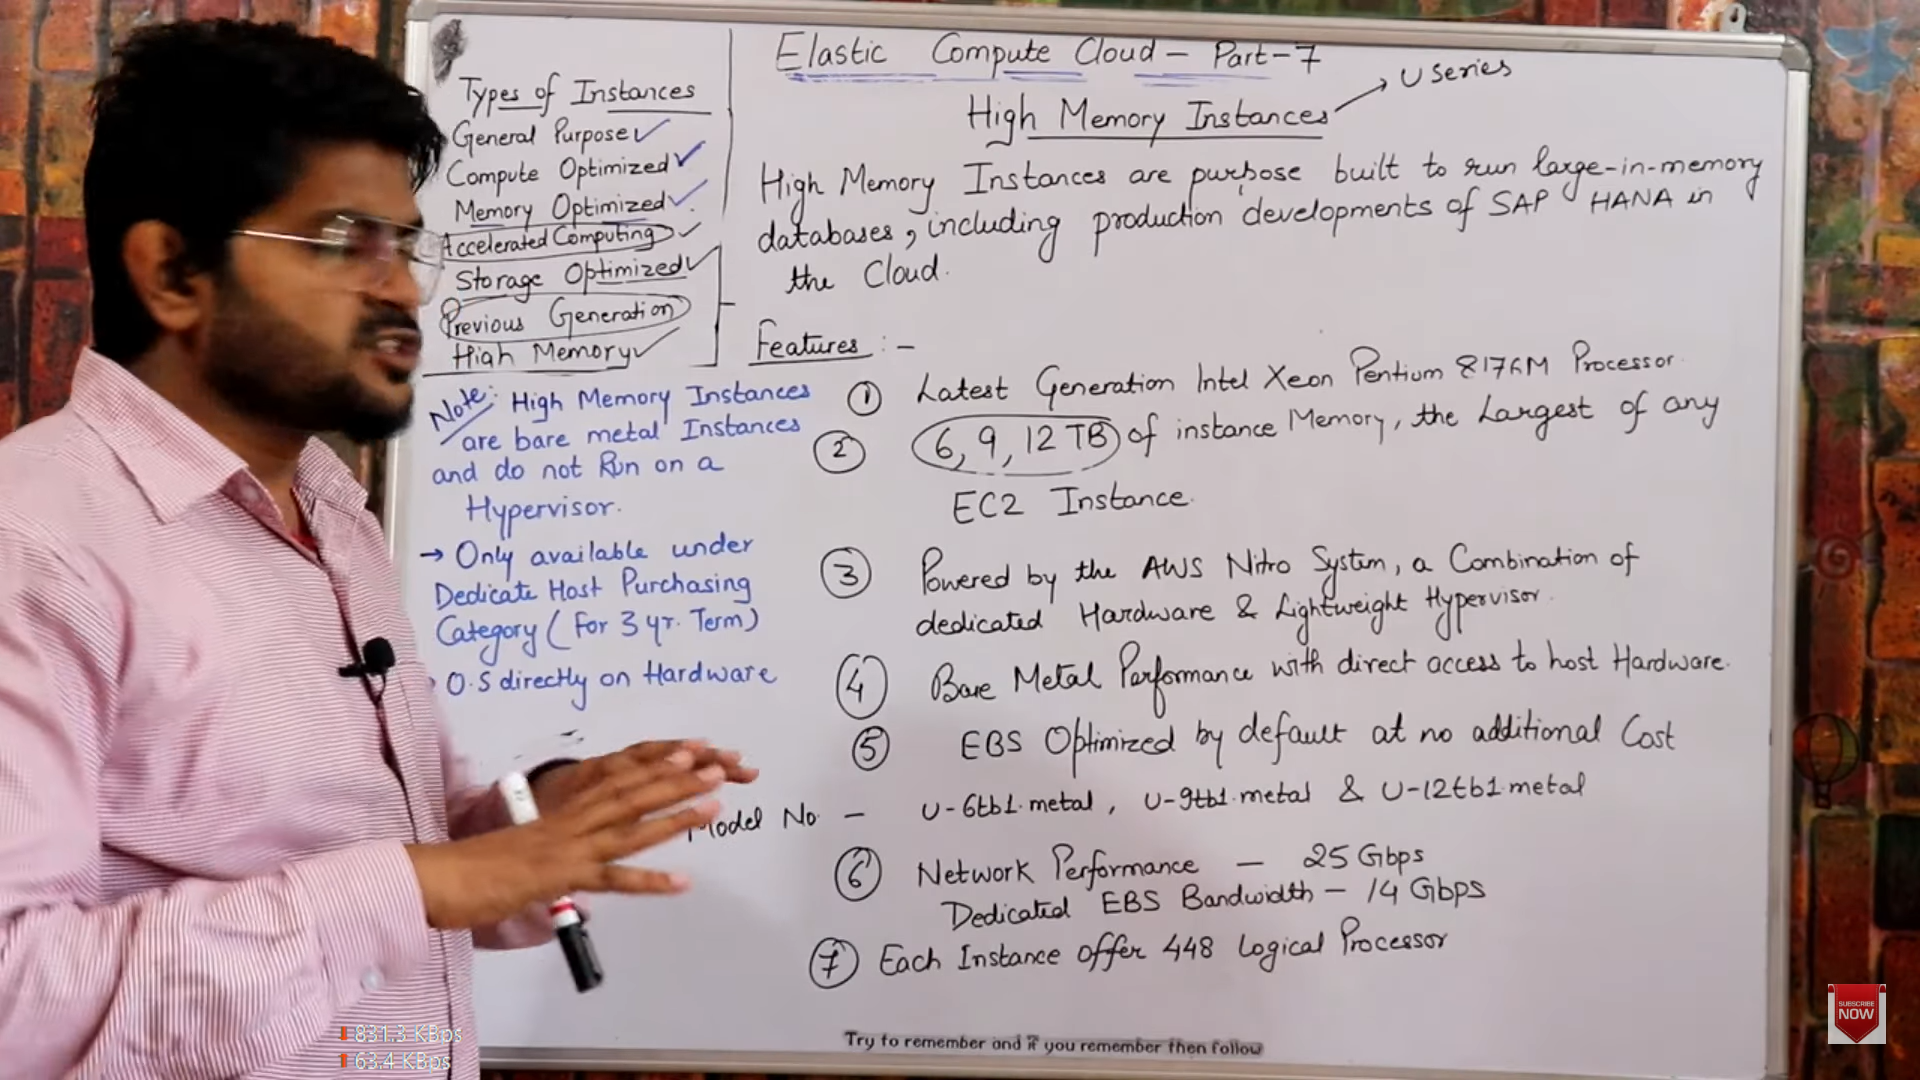 Elastic Compute Cloud - Part-7
Types of Instances
General Purpose ✓
Compute Optimized ✓
Memory Optimized ✓
Accelerated Computing ✓
Storage Optimized ✓
Previous Generation
High Memory ✓
Note: High Memory Instances
are bare metal Instances
and do not Run on a
Hypervisor.
→ Only available under
Dedicate Host Purchasing
Category (For 3 yr. Term)
O.S directly on Hardware
High Memory Instances → U Series
High Memory Instances are purpose built to run large-in-memory
databases, including production developments of SAP HANA in
the Cloud.
Features :-
① Latest Generation Intel Xeon Pentium 8176M Processor
② 6, 9, 12 TB of instance Memory, the Largest of any
EC2 Instance.
③ Powered by the AWS Nitro System, a Combination of
dedicated Hardware & Lightweight Hypervisor.
④ Bare Metal Performance with direct access to host Hardware.
⑤ EBS Optimized by default at no additional Cost
Model No. - U-6tb1.metal, U-9tb1.metal & U-12tb1.metal
⑥ Network Performance - 25 Gbps
Dedicated EBS Bandwidth - 14 Gbps
⑦ Each Instance offer 448 Logical Processor
Try to remember and if you remember then follow
831.3 KBps
63.4 KBps
SUBSCRIBE
NOW